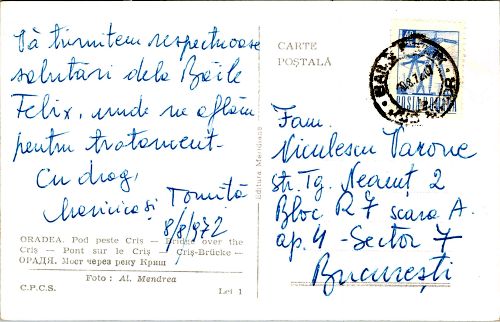 Vă trimitem respectuoase
salutări dela Băile
Felix, unde ne aflăm
pentru tratament.
Cu drag,
și Tomiță
8/8/972
ORADEA. Pod peste Criș — Bridge over the
Criș — Pont sur le Criș — Criș-Brücke —
ОРАДЯ. Мост через реку Криш
Foto: Al. Mendrea
C.P.C.S.
Lei 1
Editura Meridiane
CARTE
POȘTALĂ
Fam.
Niculescu Varone
str. Tg. Neamț 2
Bloc R7 scara A.
ap. 4 - Sector 7
București